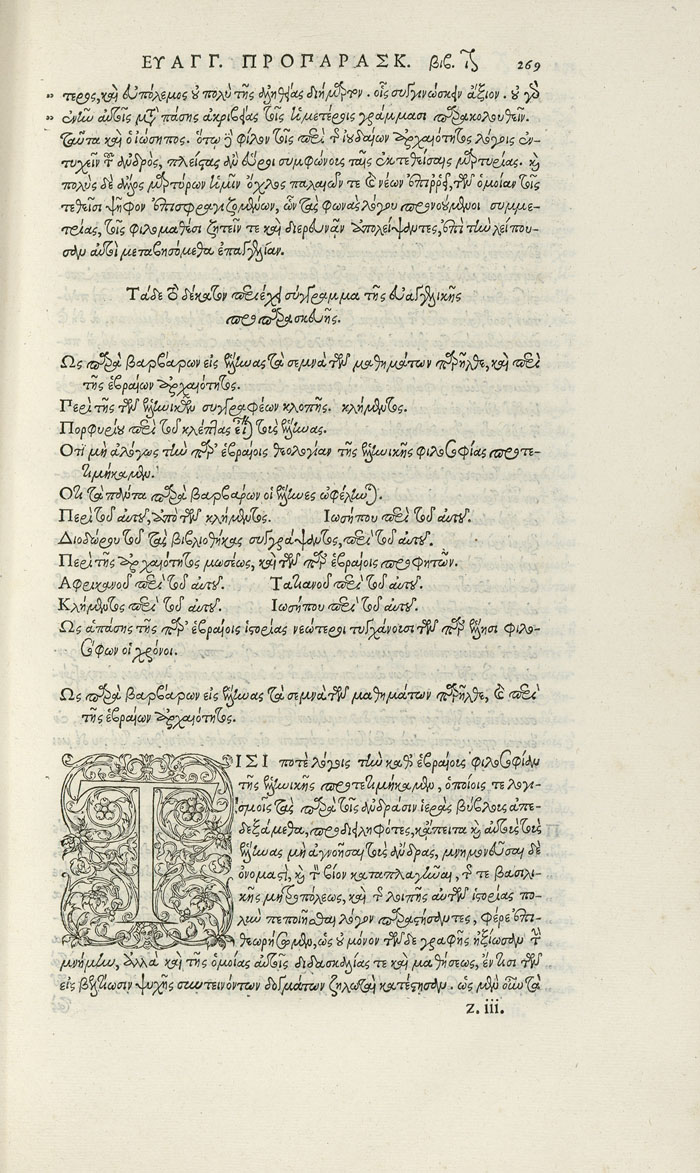 ΕΥΑΓΓ. ΠΡΟΠΑΡΑΣΚ. βιβ. 269
„ τερος, καὶ Εὐπόλεμος οὐ πολὺ τῆς ἀληθείας διήμαρτον. οἷς συγγινώσκειν ἄξιον. οὐ γὰρ
„ ἐνῆν αὐτοῖς μετὰ πάσης ἀκριβείας τοῖς ἡμετέροις γράμμασι παρακολουθεῖν.
Ταῦτα καὶ ὁ ἰώσηπος. ὅτῳ δὲ φίλον τοῖς περὶ τῆς ἰουδαίων ἀρχαιότητος λόγοις ἐν-
τυχεῖν τἀνδρὸς, πλείστας ἂν εὕροι συμφώνους ταῖς ἐκτεθείσαις μαρτυρίας. καὶ
πολὺς δὲ ἄλλος μαρτύρων ἡμῖν ὄχλος παλαιῶν τε καὶ νέων ἐπιρρεῖ, τὴν ὁμοίαν τοῖς
τεθεῖσι ψῆφον ἐπισφραγιζομένων, ὧν τὰς φωνὰς λόγου προνοούμενοι συμμε-
τρίας, τοῖς φιλομαθέσι ζητεῖν τε καὶ διερευνᾶν ἀπολείψαντες, ἐπὶ τὴν λείπου-
σαν αὐτοὶ μεταβησόμεθα ἐπαγγελίαν.
Τάδε τὸ δέκατον περιέχει σύγγραμμα τῆς εὐαγγελικῆς
προπαρασκευῆς.
Ως παρὰ βαρβάρων εἰς ἕλληνας τὰ σεμνὰ τῶν μαθημάτων παρῆλθε, καὶ περὶ
τῆς ἑβραίων ἀρχαιότητος.
Περὶ τῆς τῶν ἑλληνικῶν συγγραφέων κλοπῆς. κλήμεντος.
Πορφυρίου περὶ τοῦ κλέπτας εἶναι τοὺς ἕλληνας.
Οτι μὴ ἀλόγως τὴν παρ' ἑβραίοις θεολογίαν τῆς ἑλληνικῆς φιλοσοφίας προτε-
τιμήκαμεν.
Οτι τὰ πάντα παρὰ βαρβάρων οἱ ἕλληνες ὠφέληνται.
Περὶ τοῦ αὐτοῦ, ἀπὸ τῶν κλήμεντος. Ιωσήπου περὶ τοῦ αὐτοῦ.
Διοδώρου τοῦ τὰς βιβλιοθήκας συγγράψαντος, περὶ τοῦ αὐτοῦ.
Περὶ τῆς ἀρχαιότητος μωσέως, καὶ τῶν παρ' ἑβραίοις προφητῶν.
Αφρικανοῦ περὶ τοῦ αὐτοῦ. Τατιανοῦ περὶ τοῦ αὐτοῦ.
Κλήμεντος περὶ τοῦ αὐτοῦ. Ιωσήπου περὶ τοῦ αὐτοῦ.
Ως ἁπάσης τῆς παρ' ἑβραίοις ἱστορίας νεώτεροι τυγχάνουσι τῶν παρ' ἕλλησι φιλο-
σόφων οἱ χρόνοι.
Ως παρὰ βαρβάρων εἰς ἕλληνας τὰ σεμνὰ τῶν μαθημάτων παρῆλθε, καὶ περὶ
τῆς ἑβραίων ἀρχαιότητος.
ΤΙΣΙ ποτὲ λόγοις τὴν καθ' ἑβραίους φιλοσοφίαν
τῆς ἑλληνικῆς προτετιμήκαμεν, ὁποίοις τε λογι-
σμοῖς τὰς παρὰ τοῖς ἀνδράσιν ἱερὰς βύβλους ἀπε-
δεξάμεθα, προδιειληφότες, κἄπειτα καὶ αὐτοὺς τοὺς
ἕλληνας μὴ ἀγνοῆσαι τοὺς ἄνδρας, μνημονεῦσαι δὲ
ὀνομαστὶ, καὶ τὸν βίον καταπλαγῆναι, τῆς τε βασιλι-
κῆς μητροπόλεως, καὶ τῆς λοιπῆς αὐτῶν ἱστορίας πο-
λὺν πεποιῆσθαι λόγον παραστήσαντες, φέρε ἐπι-
θεωρήσωμεν, ὡς οὐ μόνον τῶνδε γραφῆς ἠξίωσαν τὴν
μνήμην, ἀλλὰ καὶ τῆς ὁμοίας αὐτοῖς διδασκαλίας τε καὶ μαθήσεως, ἔν τισι τῶν
εἰς βελτίωσιν ψυχῆς συντεινόντων δογμάτων ζηλωταὶ κατέστησαν. ὡς μὲν οὖν τὰ
z. iii.